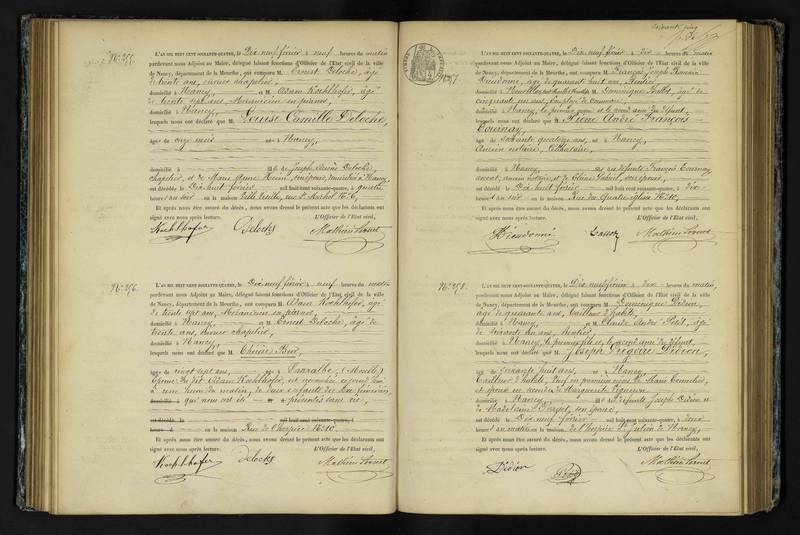 N° 255.
L'AN MIL HUIT CENT SOIXANTE-QUATRE, le Dix neuf février à neuf heures du matin
pardevant nous Adjoint au Maire, délégué faisant fonctions d'Officier de l'Etat civil de la ville
de Nancy, département de la Meurthe, ont comparu M. Ernest Deloche, âgé
de trente ans, ouvrier chapelier,
domicilié à Nancy, et M. Adam Kochlhofer, âgé
de trente sept ans, Mécanicien en pianos,
domicilié à Nancy,
lesquels nous ont déclaré que M. Louise Camille Deloche,
âgée de onze mois né à Nancy,
domicilié à fille de Joseph Deloche,
chapelier, et de Marie Anne domiciliés à Nancy,
est décédée le Dix huit février mil huit cent soixante-quatre, à quatre
heures du soir en la maison Ville Vieille, rue St Michel N° 6,
Et après nous être assuré du décès, nous avons dressé le présent acte que les déclarants ont
signé avec nous après lecture. L'Officier de l'Etat civil,
Kochlhofer Deloche Mathieu
N° 256.
L'AN MIL HUIT CENT SOIXANTE-QUATRE, le Dix neuf février à neuf heures du matin
pardevant nous Adjoint au Maire, délégué faisant fonctions d'Officier de l'Etat civil de la ville
de Nancy, département de la Meurthe, ont comparu M. Adam Kochlhofer, âgé
de trente sept ans, Mécanicien en pianos,
domicilié à Nancy, et M. Ernest Deloche, âgé de
trente ans, ouvrier chapelier,
domicilié à Nancy,
lesquels nous ont déclaré que M. Thérèse
âgée de vingt sept ans, née à Saaralbe, (Moselle)
Epouse du dit Adam Kochlhofer, est accouchée
à une heure du matin de deux enfants du sexe féminin
domicilié à qui nous ont été présentés sans vie,
est décédé le mil huit cent soixante-quatre, à
heures d en la maison Rue de l'hospice N° 10.
Et après nous être assuré du décès, nous avons dressé le présent acte que les déclarants ont
signé avec nous après lecture. L'Officier de l'Etat civil,
Kochlhofer Deloche Mathieu
soixante cinq
N° 257.
L'AN MIL HUIT CENT SOIXANTE-QUATRE, le Dix neuf février à dix heures du matin
pardevant nous Adjoint au Maire, délégué faisant fonctions d'Officier de l'Etat civil de la ville
de Nancy, département de la Meurthe, ont comparu M. François Joseph
Dieudonné, âgé de quarante huit ans, Rentier,
domicilié à et M. Dominique âgé de
cinquante un ans, Employé de commerce,
domicilié à Nancy, le premier et le second ami du défunt,
lesquels nous ont déclaré que M. Pierre André François
Tournay,
âgé de soixante quatorze ans, né à Nancy,
Ancien notaire, Célibataire,
domicilié à Nancy, fils de défunts François Tournay,
avocat, ancien notaire, et de son épouse,
est décédé le Dix huit février mil huit cent soixante-quatre, à dix
heures du soir en la maison Rue des Quatre Eglises N° 10,
Et après nous être assuré du décès, nous avons dressé le présent acte que les déclarants ont
signé avec nous après lecture. L'Officier de l'Etat civil,
Dieudonné Mathieu
N° 258.
L'AN MIL HUIT CENT SOIXANTE-QUATRE, le Dix neuf février à dix heures du matin,
pardevant nous Adjoint au Maire, délégué faisant fonctions d'Officier de l'Etat civil de la ville
de Nancy, département de la Meurthe, ont comparu M. Dominique Didion,
âgé de quarante ans, Tailleur d'habits,
domicilié à Nancy, et M. Claude André Petit, âgé
de soixante dix ans, Rentier,
domicilié à Nancy, le premier fils et le second ami du défunt,
lesquels nous ont déclaré que M. Joseph Grégoire Didion,
âgé de soixante huit ans, né à Nancy,
Tailleur d'habits, Veuf en premières noces de Marie
et époux en secondes de Marguerite
domicilié à Nancy fils de défunts Joseph Didion et
de Madeleine son épouse,
est décédé le Dix neuf février mil huit cent soixante-quatre, à deux
heures du matin en la maison de l'hospice St Julien de Nancy,
Et après nous être assuré du décès, nous avons dressé le présent acte que les déclarants ont
signé avec nous après lecture. L'Officier de l'Etat civil,
Didion Petit Mathieu